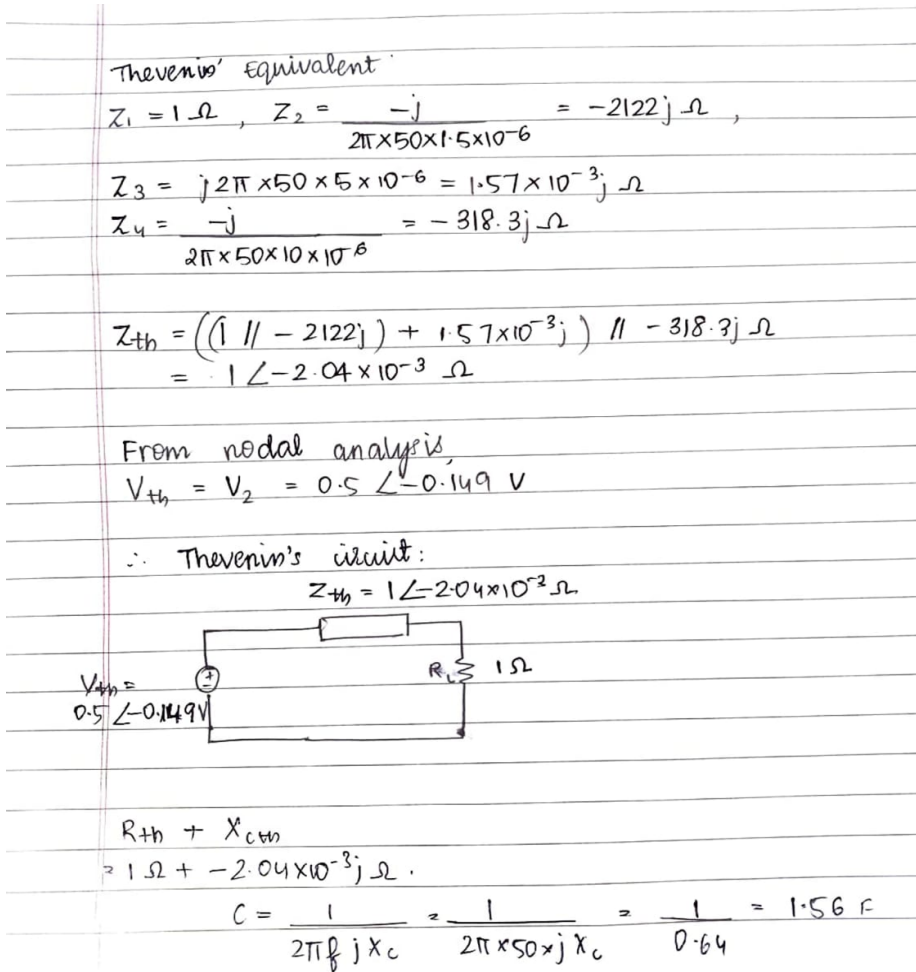 Thevenin's Equivalent
Z1 = 1 Ω , Z2 = -j / 2π×50×1.5×10-6 = -2122j Ω ,
Z3 = j2π ×50 ×5 × 10-6 = 1.57×10-3j Ω
Z4 = -j / 2π×50×10×10-6 = - 318.3j Ω
Zth = ((1 // - 2122j) + 1.57×10-3j) // - 318.3j Ω
= 1 ∠-2.04 × 10-3 Ω
From nodal analysis,
Vth = V2 = 0.5 ∠-0.149 V
∴ Thevenin's circuit:
Zth = 1∠-2.04×10-3 Ω
+
RL 1Ω
Vth =
0.5 ∠-0.149V
Rth + Xcth
= 1Ω + -2.04×10-3j Ω .
C = 1 / 2πf jXc = 1 / 2π×50×j Xc = 1 / 0.64 = 1.56 F